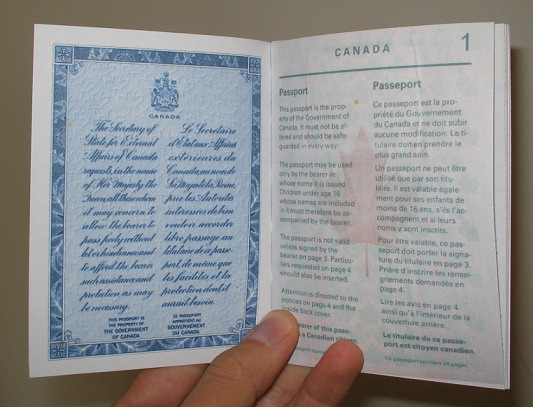 CANADA
The Secretary of
State for External
Affairs of Canada
requests, in the name
of Her Majesty the
Queen, all those whom
it may concern to
allow the bearer to
pass freely without
let or hindrance and
to afford the bearer
such assistance and
protection as may
be necessary.
THIS PASSPORT IS
THE PROPERTY OF
THE GOVERNMENT
OF CANADA
Le Secrétaire
d'État aux Affaires
extérieures du
Canada, au nom de
Sa Majesté la Reine,
prie les Autorités
intéressées de bien
vouloir accorder
libre passage au
titulaire de ce passe-
port, de même que
les facilités et la
protection dont il
aurait besoin.
CE PASSEPORT
APPARTIENT AU
GOUVERNEMENT
DU CANADA
CANADA
1
Passport
This passport is the prop-
erty of the Government of
Canada. It must not be al-
tered and should be safe-
guarded in every way.
The passport may be used
only by the bearer in
whose name it is issued.
Children under age 16
whose names are included
in it must therefore be ac-
companied by the bearer.
The passport is not valid
unless signed by the
bearer on page 3. Particu-
lars requested on page 4
should also be inserted.
Attention is directed to the
notices on page 4 and the
back cover.
of this pass-
a Canadian citizen.
Passeport
Ce passeport est la pro-
priété du Gouvernement
du Canada et ne doit subir
aucune modification. Le ti-
tulaire doit en prendre le
plus grand soin.
Un passeport ne peut être
utilisé que par son titu-
laire. Il est valable égale-
ment pour ses enfants de
moins de 16 ans, s'ils l'ac-
compagnent et si leurs
noms y sont inscrits.
Pour être valable, ce pas-
seport doit porter la signa-
ture du titulaire en page 3.
Prière d'inscrire les ren-
seignements demandés en
page 4.
Lire les avis en page 4
ainsi qu'à l'intérieur de la
couverture arrière.
Le titulaire de ce passe-
port est citoyen canadien.
Ce passeport contient 24 pages